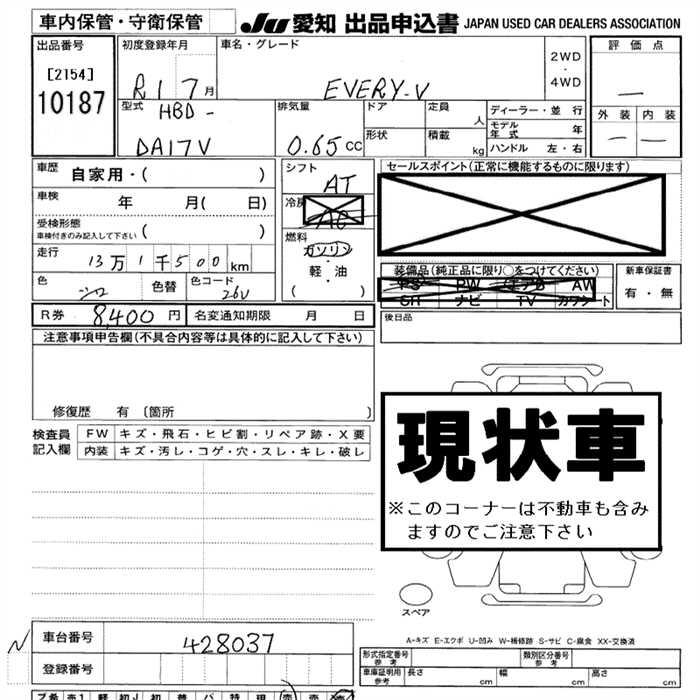 車内保管・守衛保管
JU 愛知 出品申込書 JAPAN USED CAR DEALERS ASSOCIATION
出品番号
[2154]
10187
初度登録年月
R1 7月
車名・グレード
EVERY-V
2WD
・
4WD
評価点
—
外装 内装
— —
型式
HBD-
DA17V
排気量
0.65cc
ドア
形状
定員 人
積載 kg
ディーラー・並行
モデル年式 年
ハンドル 左・右
車歴 自家用・( )
車検 年 月( 日)
受検形態
車検付きのみ記入して下さい ( )
走行 13万1千500km
色 シロ 色替 色コード 26U
シフト
AT
冷房
AC
燃料
ガソリン
・
軽・油
( )
セールスポイント(正常に機能するものに限ります)
装備品(純正品に限り○をつけてください)
PS PW エアB AW
SR ナビ TV カワシート
新車保証書
有・無
R券 8,400円 名変通知期限 月 日
後日品
注意事項申告欄(不具合内容等は具体的に記入して下さい)
修復歴 有 〔箇所 〕
検査員記入欄
FW キズ・飛石・ヒビ割・リペア跡・X要
内装 キズ・汚レ・コゲ・穴・スレ・キレ・破レ
現状車
※このコーナーは不動車も含み
ますのでご注意下さい
スペア
A-キズ E-エクボ U-凹み W-補修跡 S-サビ C-腐食 XX-交換済
N
車台番号 428037
登録番号
形式指定番号 参考
類別区分番号 参考
車庫証明用 参考 長さ cm 幅 cm 高さ cm